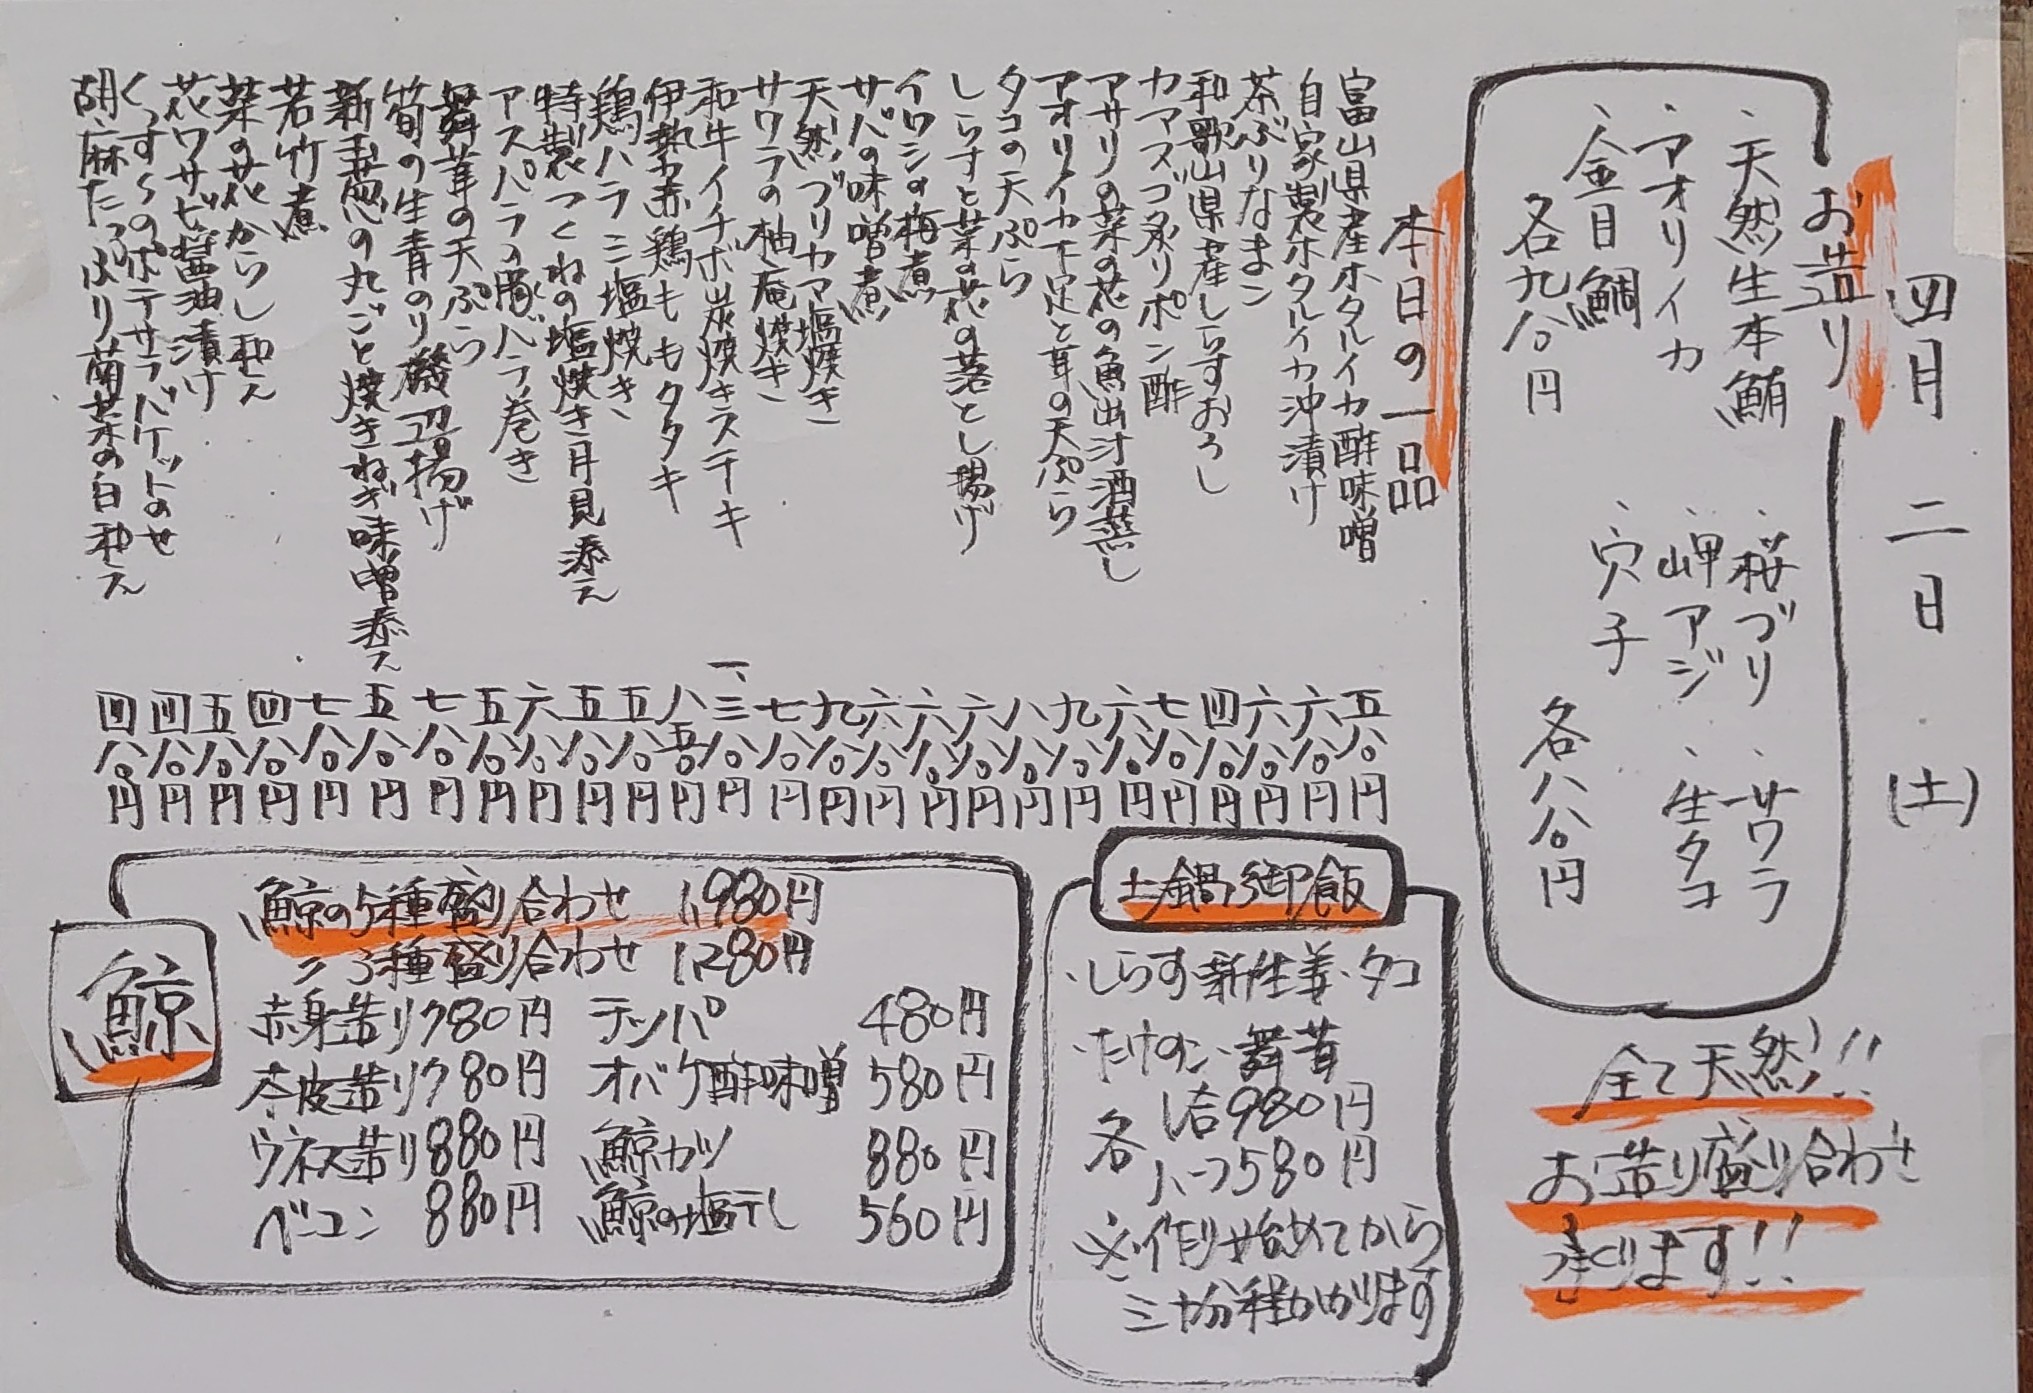 四月二日(土)
お造り
・天然生本鮪
・アオリイカ
・金目鯛
各九八〇円
・桜ブリ
・岬アジ
・穴子
・サワラ
・生タコ
各八八〇円
全て天然!!
お造り盛り合わせ
承ります!!
本日の一品
富山県産ホタルイカ酢味噌 五八〇円
自家製ホタルイカ沖漬け 六八〇円
茶ぶりなまこ 六八〇円
和歌山県産しらすおろし 四八〇円
カマスゴ炙りポン酢 七八〇円
アサリの菜の花の魚出汁酒蒸し 六八〇円
アオリイカ下足と茸の天ぷら 九八〇円
タコの天ぷら 八八〇円
しらすと菜の花の落とし揚げ 六八〇円
イワシの梅煮 六八〇円
サバの味噌煮 六八〇円
天然ブリカマ塩焼き 九八〇円
サワラの柚庵焼き 七八〇円
和牛イチボ炭焼きステーキ 一、三八〇円
伊勢赤鶏ももタタキ 八五〇円
鶏ハラミ塩焼き 五八〇円
特製つくねの塩焼き月見添え 五八〇円
アスパラの豚バラ巻き 六八〇円
舞茸の天ぷら 五八〇円
筍の生青のり磯辺揚げ 七八〇円
新玉葱の丸ごと焼きねぎ味噌添え 五八〇円
若竹煮 七八〇円
菜の花からし和え 四八〇円
花ワサビ醤油漬け 五八〇円
くんすけのポテサラバケットのせ 四八〇円
胡麻たっぷり菊菜の白和え 四八〇円
土鍋御飯
・しらす新生姜・タコ
・たけのこ・舞茸
各 1合980円
ハーフ580円
※作り始めてから
三十分程かかります
鯨
鯨の5種盛り合わせ 1,980円
〃 3種盛り合わせ 1,280円
赤身造り780円 テッパ 480円
本皮造り780円 オバケ酢味噌 580円
ウネス造り880円 鯨カツ 880円
ベーコン 880円 鯨の塩干し 560円